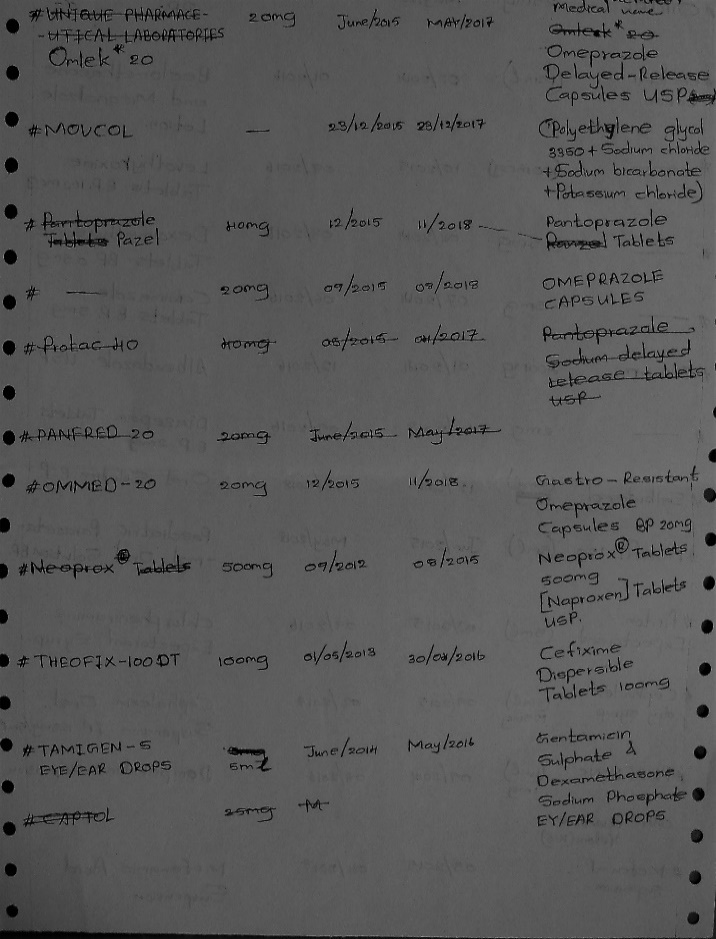 #UNIQUE PHARMACE- 20mg June/2015 MAY/2017 Medical name
-UTICAL LABORATORIES Omlek* 20
Omlek* 20 Omeprazole
Delayed-Release
Capsules USP
#MOVCOL — 23/12/2015 23/12/2017 (Polyethylene glycol
3350 + Sodium chloride
+ Sodium bicarbonate
+ Potassium chloride)
# Pantoprazole 40mg 12/2015 11/2018 Pantoprazole
Tablets Pazel Tablets
# — 20mg 09/2015 08/2018 OMEPRAZOLE
CAPSULES
#Protac 40 40mg 05/2015 04/2017 Pantoprazole
Sodium delayed
release tablets
USP
#PANFRED 20 20mg June/2015 May/2017
#OMMED-20 20mg 12/2015 11/2018 Gastro-Resistant
Omeprazole
Capsules BP 20mg
#Neoprox® Tablets 500mg 09/2012 08/2015 Neoprox® Tablets
500mg
[Naproxen] Tablets
USP.
#THEOFIX-100DT 100mg 01/05/2013 30/04/2016 Cefixime
Dispersible
Tablets 100mg
#TAMIGEN-5 5ml June/2014 May/2016 Gentamicin
EYE/EAR DROPS Sulphate &
Dexamethasone
Sodium Phosphate
EY/EAR DROPS
#CAPTOL 25mg M